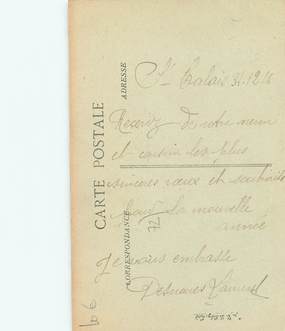 CARTE POSTALE
ADRESSE
CORRESPONDANCE
St Calais 31-12-16
Recevez de votre
et cousin les plus
sincères vœux et souhaits
pour la nouvelle
année
Je vous embrasse
72